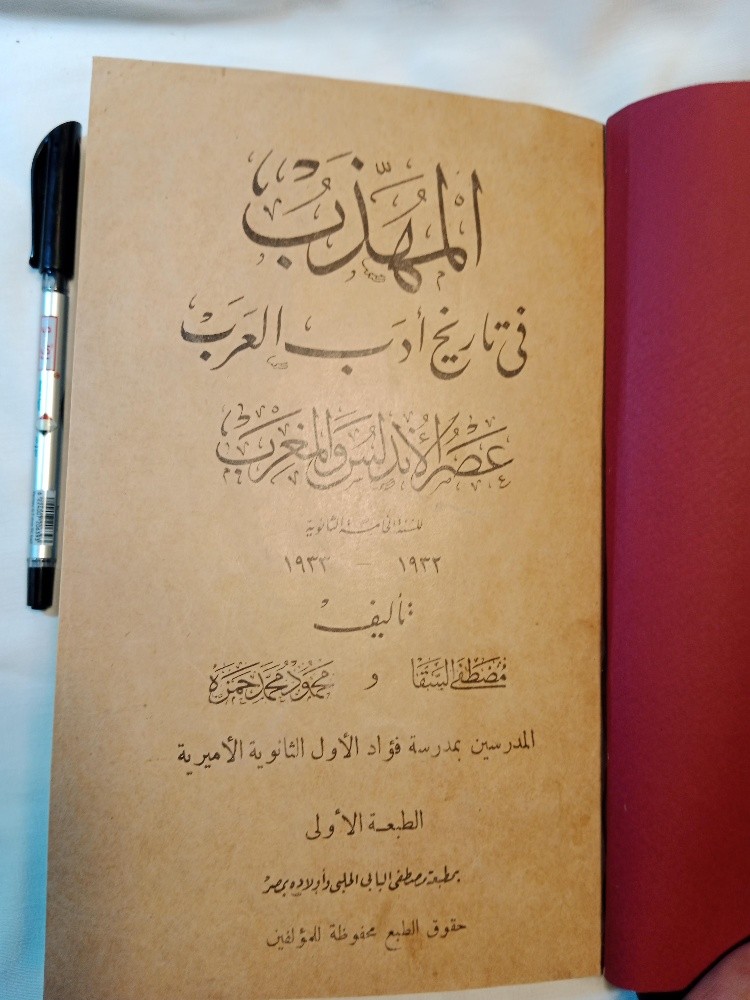 المهذب
في تاريخ أدب العرب
عصر الأندلس والمغرب
للسنة الخامسة الثانوية
١٩٣٢ – ١٩٣٣
تأليف
مصطفى السقا و محمود محمد حمزه
المدرسين بمدرسة فؤاد الأول الثانوية الأميرية
الطبعة الأولى
بمطبعة مصطفى البابي الحلبي وأولاده بمصر
حقوق الطبع محفوظة للمؤلفين